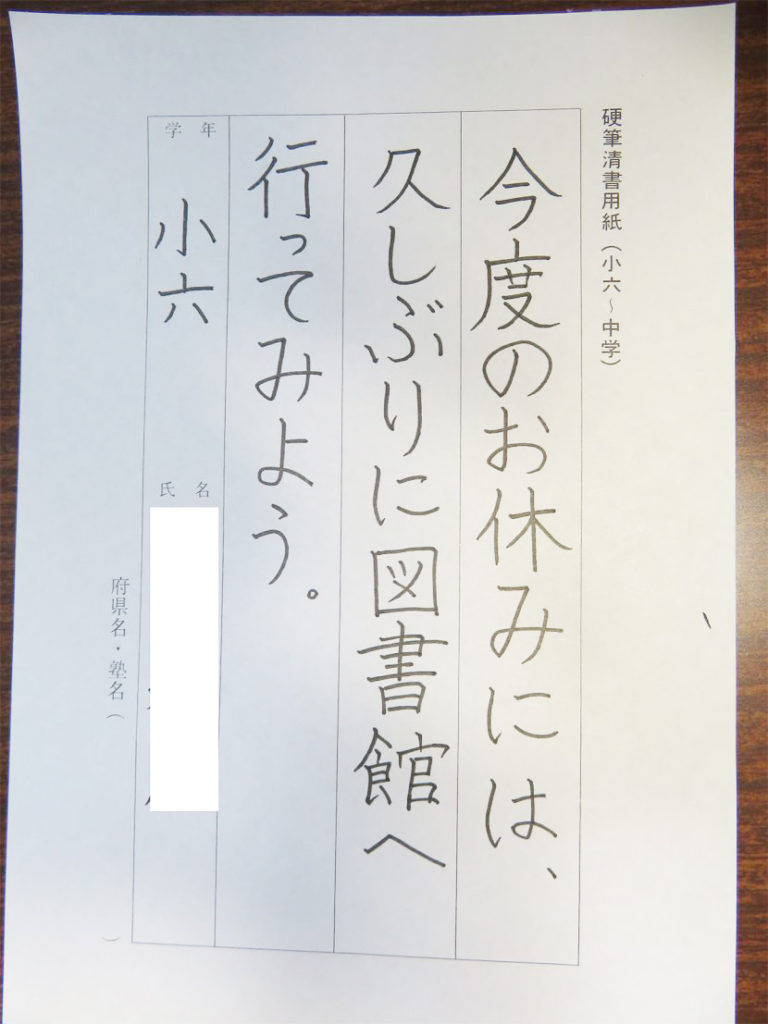 硬筆清書用紙（小六～中学）
今度のお休みには、
久しぶりに図書館へ
行ってみよう。
学年
小六
氏名
府県名・塾名（　）